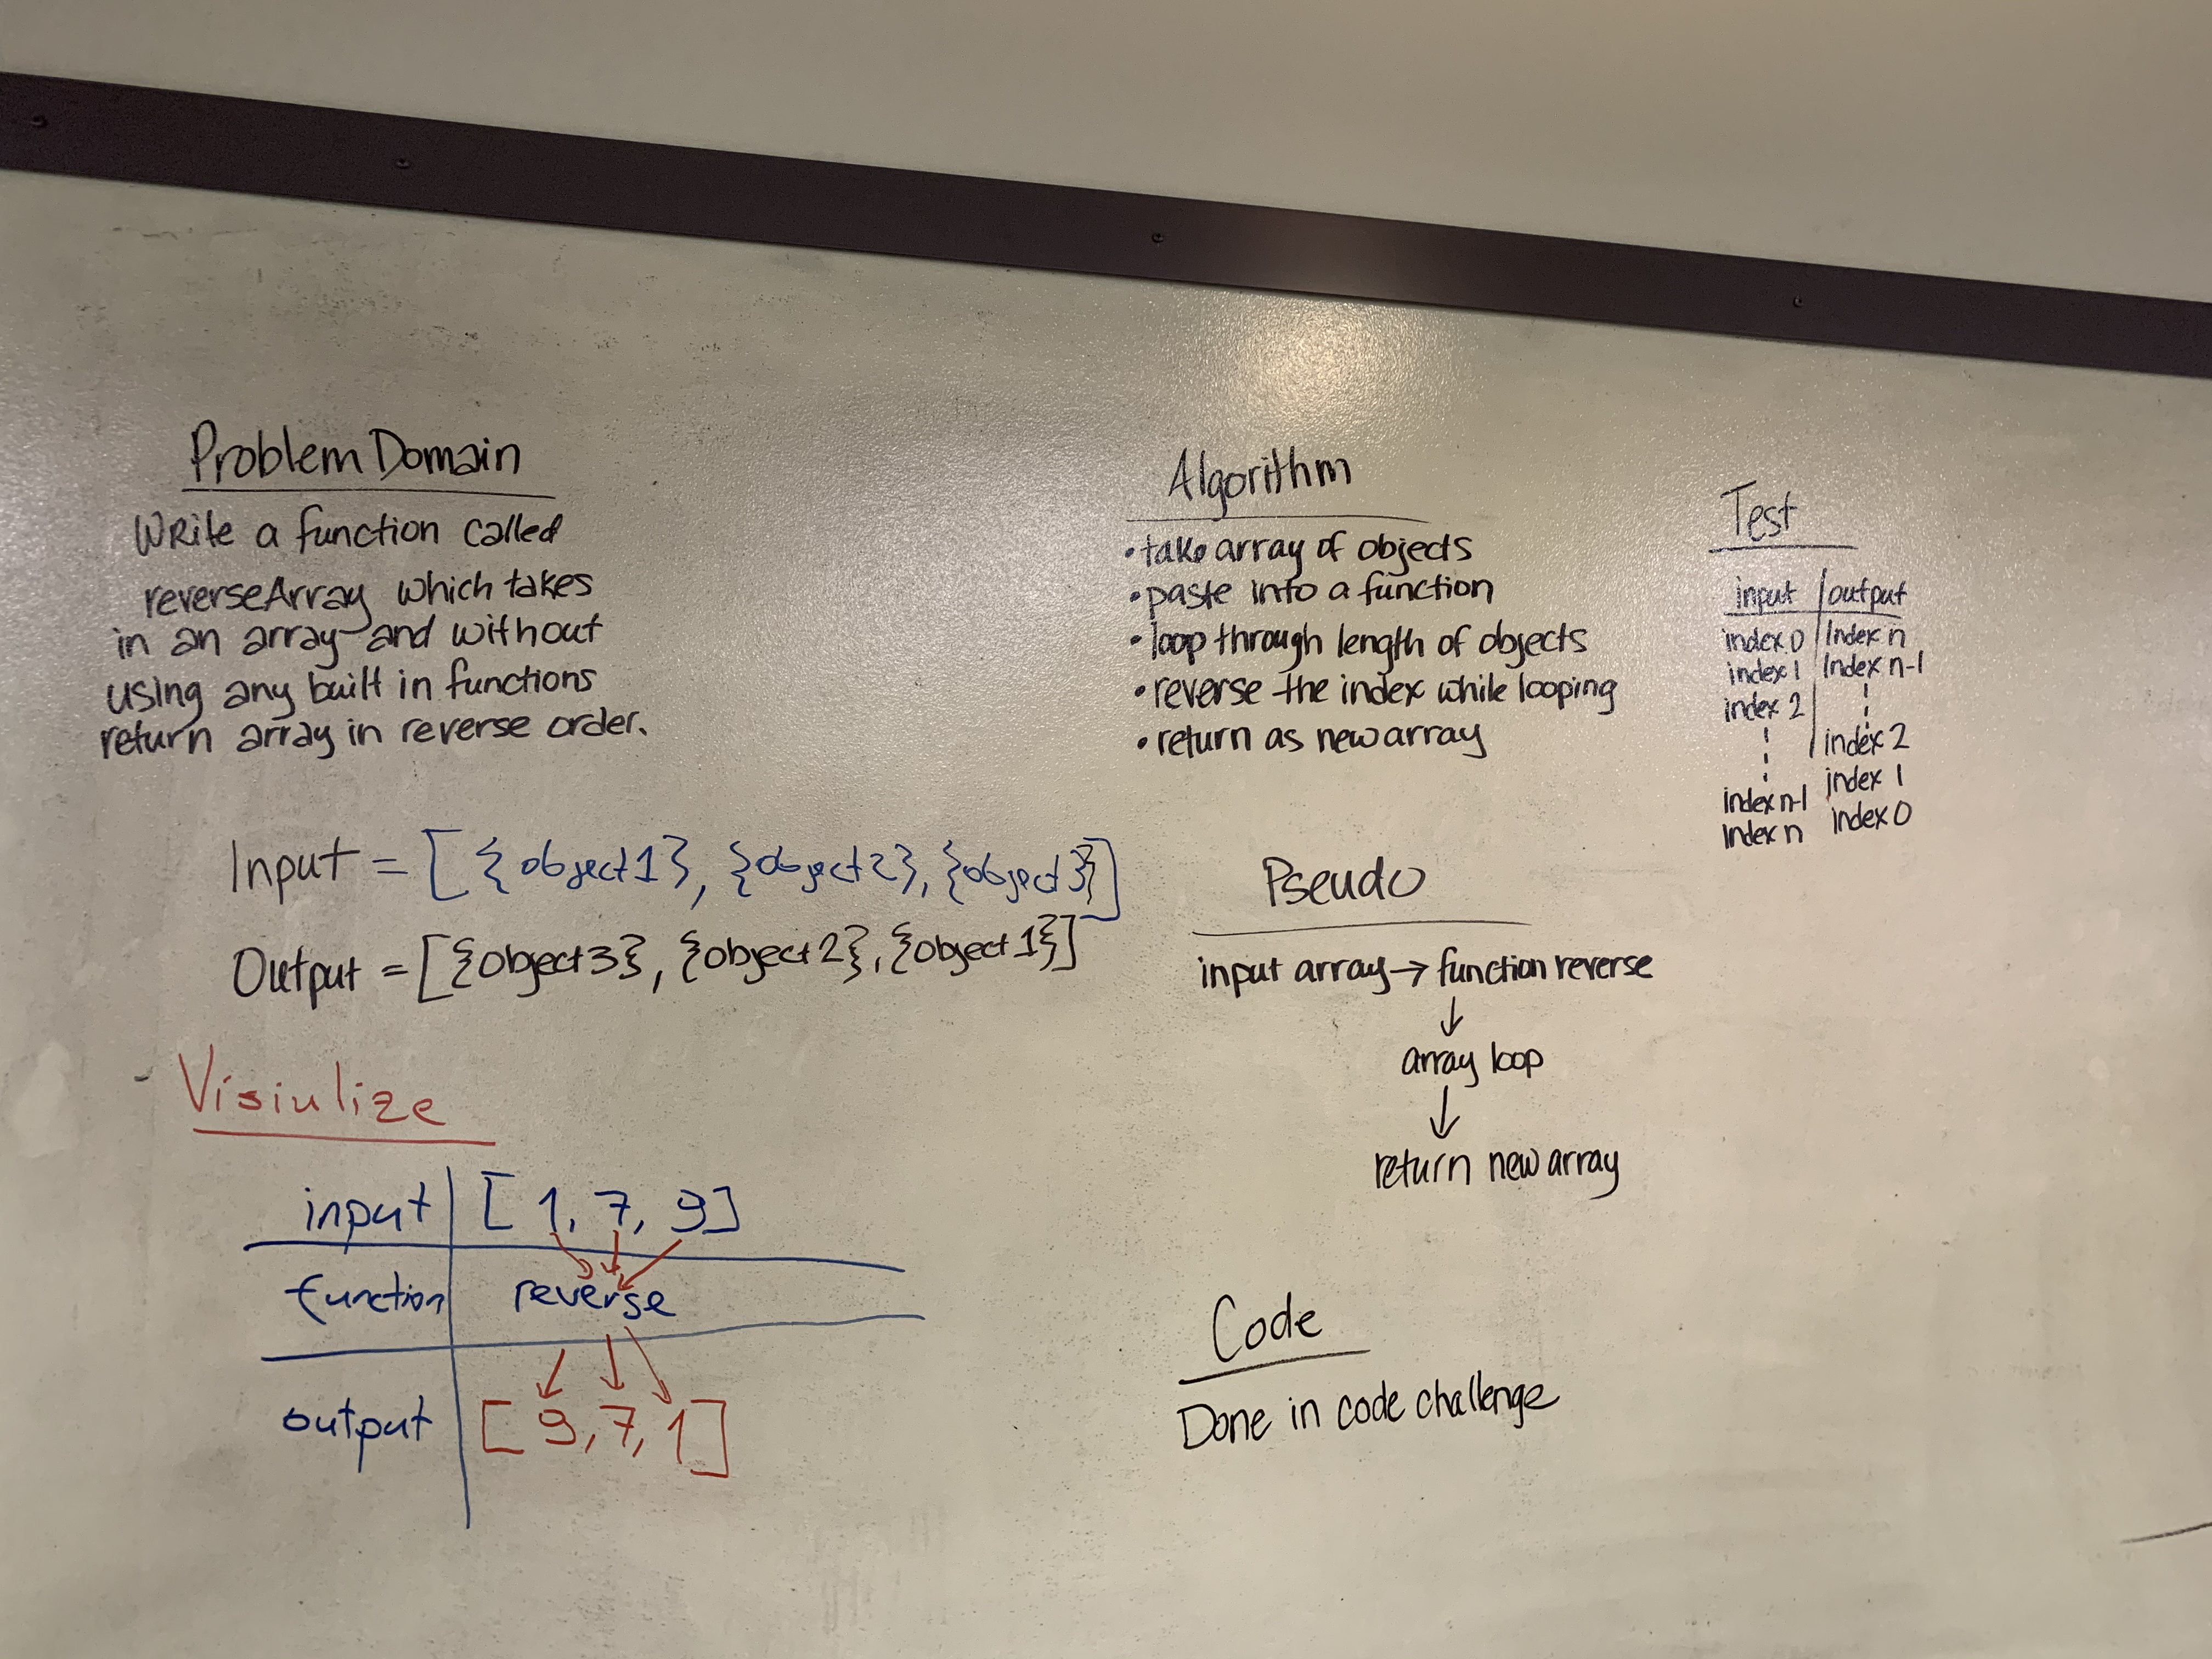 Problem Domain
Write a function called
reverseArray which takes
in an array and without
using any built in functions
return array in reverse order.
Input = [{object1}, {object2}, {object3}]
Output = [{object3}, {object2}, {object1}]
Visiulize
input [1, 7, 9]
function reverse
output [9, 7, 1]
Algorithm
• take array of objects
• paste into a function
• loop through length of objects
• reverse the index while looping
• return as new array
Pseudo
input array → function reverse
↓
array loop
↓
return new array
Code
Done in code challenge
Test
input output
index 0 Index n
index 1 Index n-1
index 2
index 2
index 1
index n-1
index 0
Index n